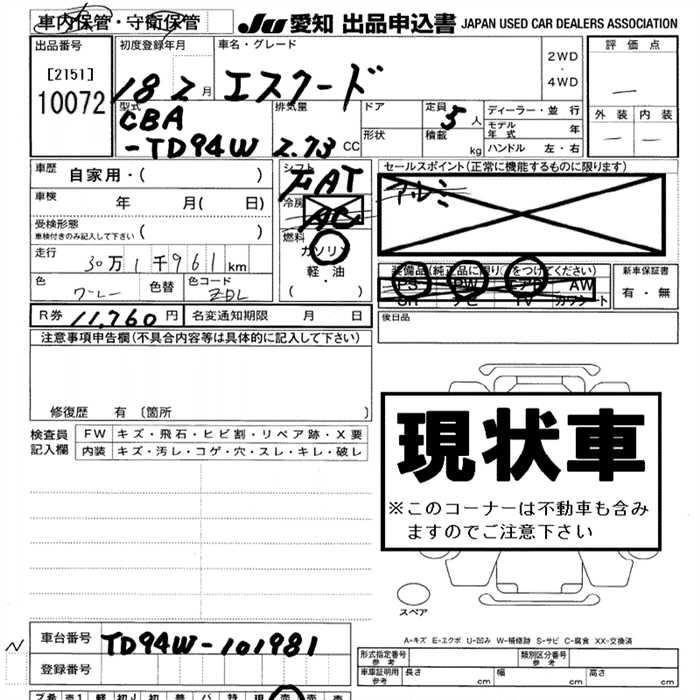 車内保管・守衛保管
JU 愛知 出品申込書 JAPAN USED CAR DEALERS ASSOCIATION
出品番号
[2151]
10072
初度登録年月
18 2 月
車名・グレード
エスクード
2WD
・
4WD
評価点
外装 内装
型式
CBA
-TD94W
排気量
2.73 CC
ドア
形状
定員
5 人
積載
kg
ディーラー・並行
モデル年式 年
ハンドル 左・右
車歴 自家用・( )
車検 年 月( 日)
受検形態
車検付きのみ記入して下さい ( )
走行 30万1千961km
色 グレー 色替 色コード ZDL
シフト
FAT
冷房
AC
燃料
ガソリン
軽・油
( ・ )
セールスポイント(正常に機能するものに限ります)
アルミ
装備品(純正品に限り○をつけてください)
PS PW エアB AW
SR ナビ TV カワシート
新車保証書
有・無
R券 11,760円 名変通知期限 月 日
後日品
注意事項申告欄(不具合内容等は具体的に記入して下さい)
修復歴 有 〔箇所 〕
検査員
記入欄
FW キズ・飛石・ヒビ割・リペア跡・X要
内装 キズ・汚レ・コゲ・穴・スレ・キレ・破レ
現状車
※このコーナーは不動車も含み
ますのでご注意下さい
スペア
A-キズ E-エクボ U-凹み W-補修跡 S-サビ C-腐食 XX-交換済
車台番号 TD94W-101981
登録番号
形式指定番号
参考
類別区分番号
参考
車庫証明用
参考
長さ cm 幅 cm 高さ cm